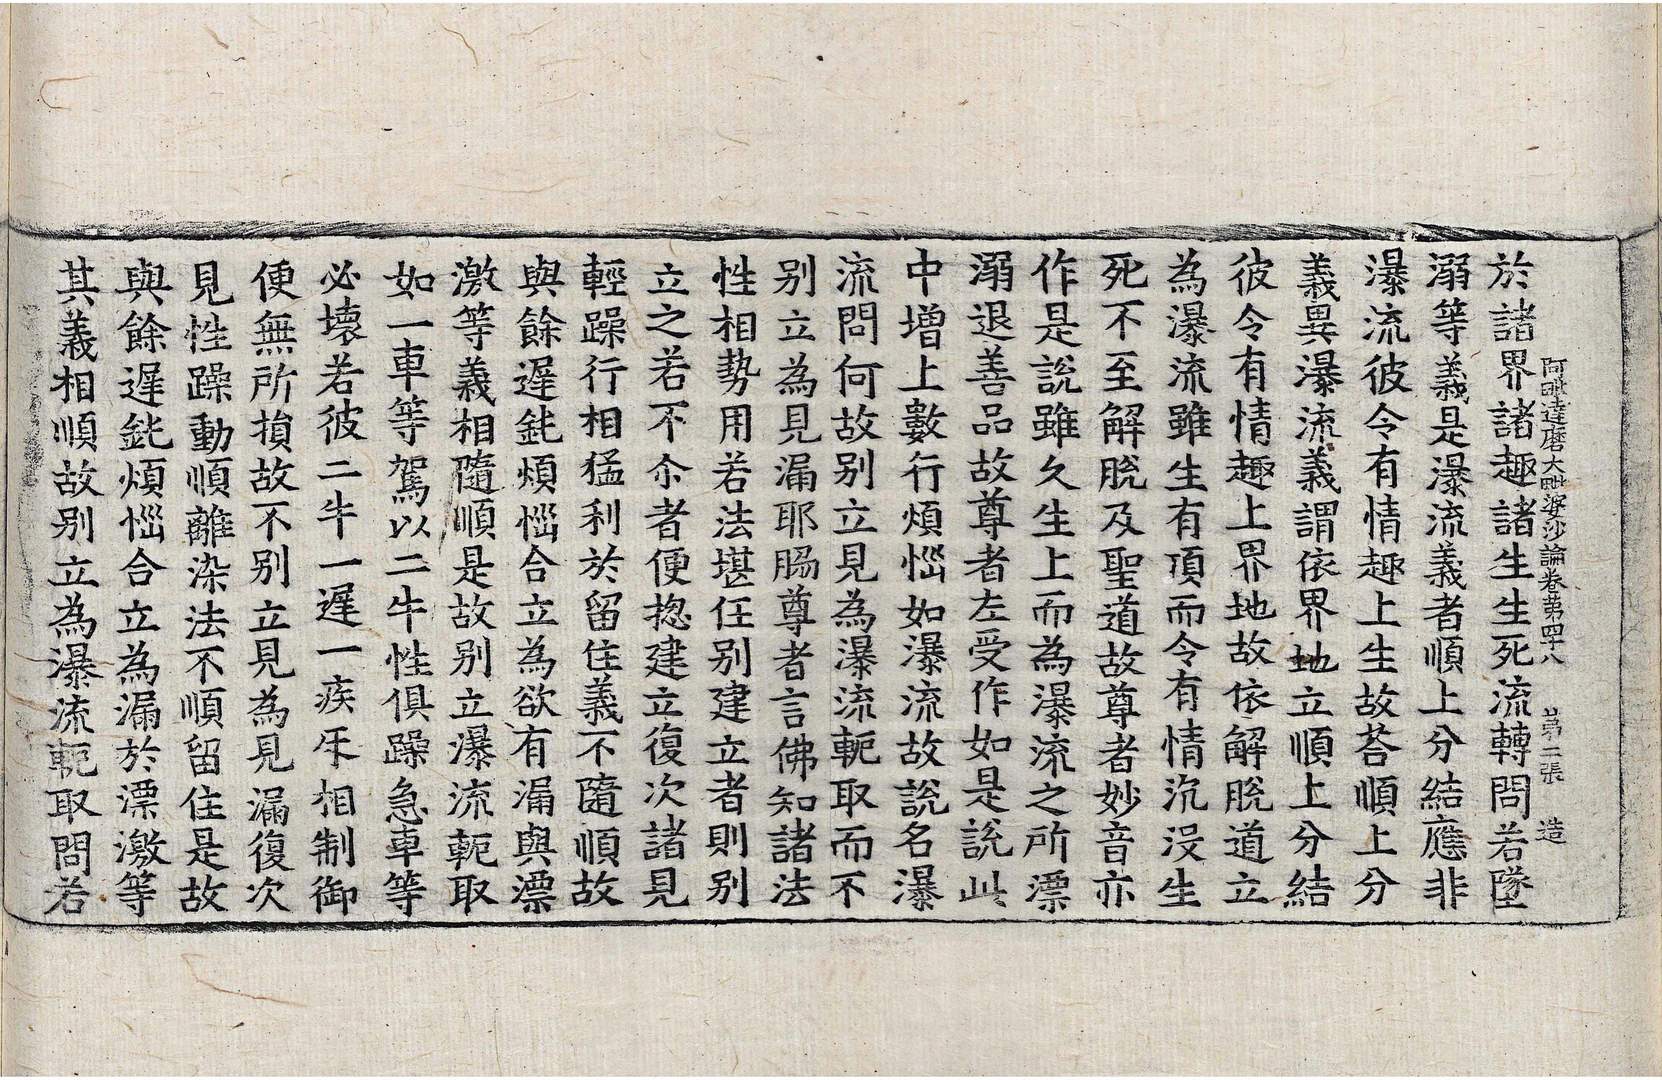 阿毗達磨大毗婆沙論卷第四十八 第二張 造
於諸界諸趣諸生生死流轉問若墜
溺等義是瀑流義者順上分結應非
瀑流彼令有情趣上生故荅順上分
義異瀑流義謂依界地立順上分結
彼令有情趣上界地故依解脫道立
為瀑流雖生有頂而令有情沉沒生
死不至解脫及聖道故尊者妙音亦
作是說雖久生上而為瀑流之所漂
溺退善品故尊者左受作如是說此
中增上數行煩惱如瀑流故說名瀑
流問何故別立見為瀑流軛取而不
別立為見漏耶脇尊者言佛知諸法
性相勢用若法堪任別建立者則別
立之若不尒者便揔建立復次諸見
輕躁行相猛利於留住義不隨順故
與餘遲鈍煩惱合立為欲有漏與漂
激等義相隨順是故別立瀑流軛取
如一車等駕以二牛性俱躁急車等
必壞若彼二牛一遲一疾㸦相制御
便無所損故不別立見為見漏復次
見性躁動順離染法不順留住是故
與餘遲鈍煩惱合立為漏於漂激等
其義相順故別立為瀑流軛取問若